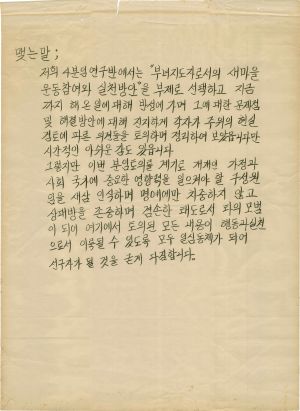 맺는말;
저희 4분임 연구반에서는 "부녀지도자로서의 새마을
운동참여와 실천방안"을 부제로 선택하고 지금
까지 해온일에 대해 반성에 가며 그에 대한 문제점
및 해결방안에 대해 진지하게 각자가 주위의 현실
검토에 따른 의견들을 토의하며 정리하여 보았읍니다만
시간적인 아쉬운 감도 있읍니다
그렇지만 이번 분임토의를 계기로 개개인 가정과
사회 국가에 중요한 영향력을 일으켜야 할 구성원
임을 새삼 인식하며 명예에만 치중하지 않고
상대방을 존중하며 겸손한 태도로서 타의 모범
이 되어 여기에서 토의된 모든 내용이 행동과 실천
으로서 이룩될 수 있도록 모두 일심동체가 되어
선구자가 될 것을 굳게 다짐합니다.